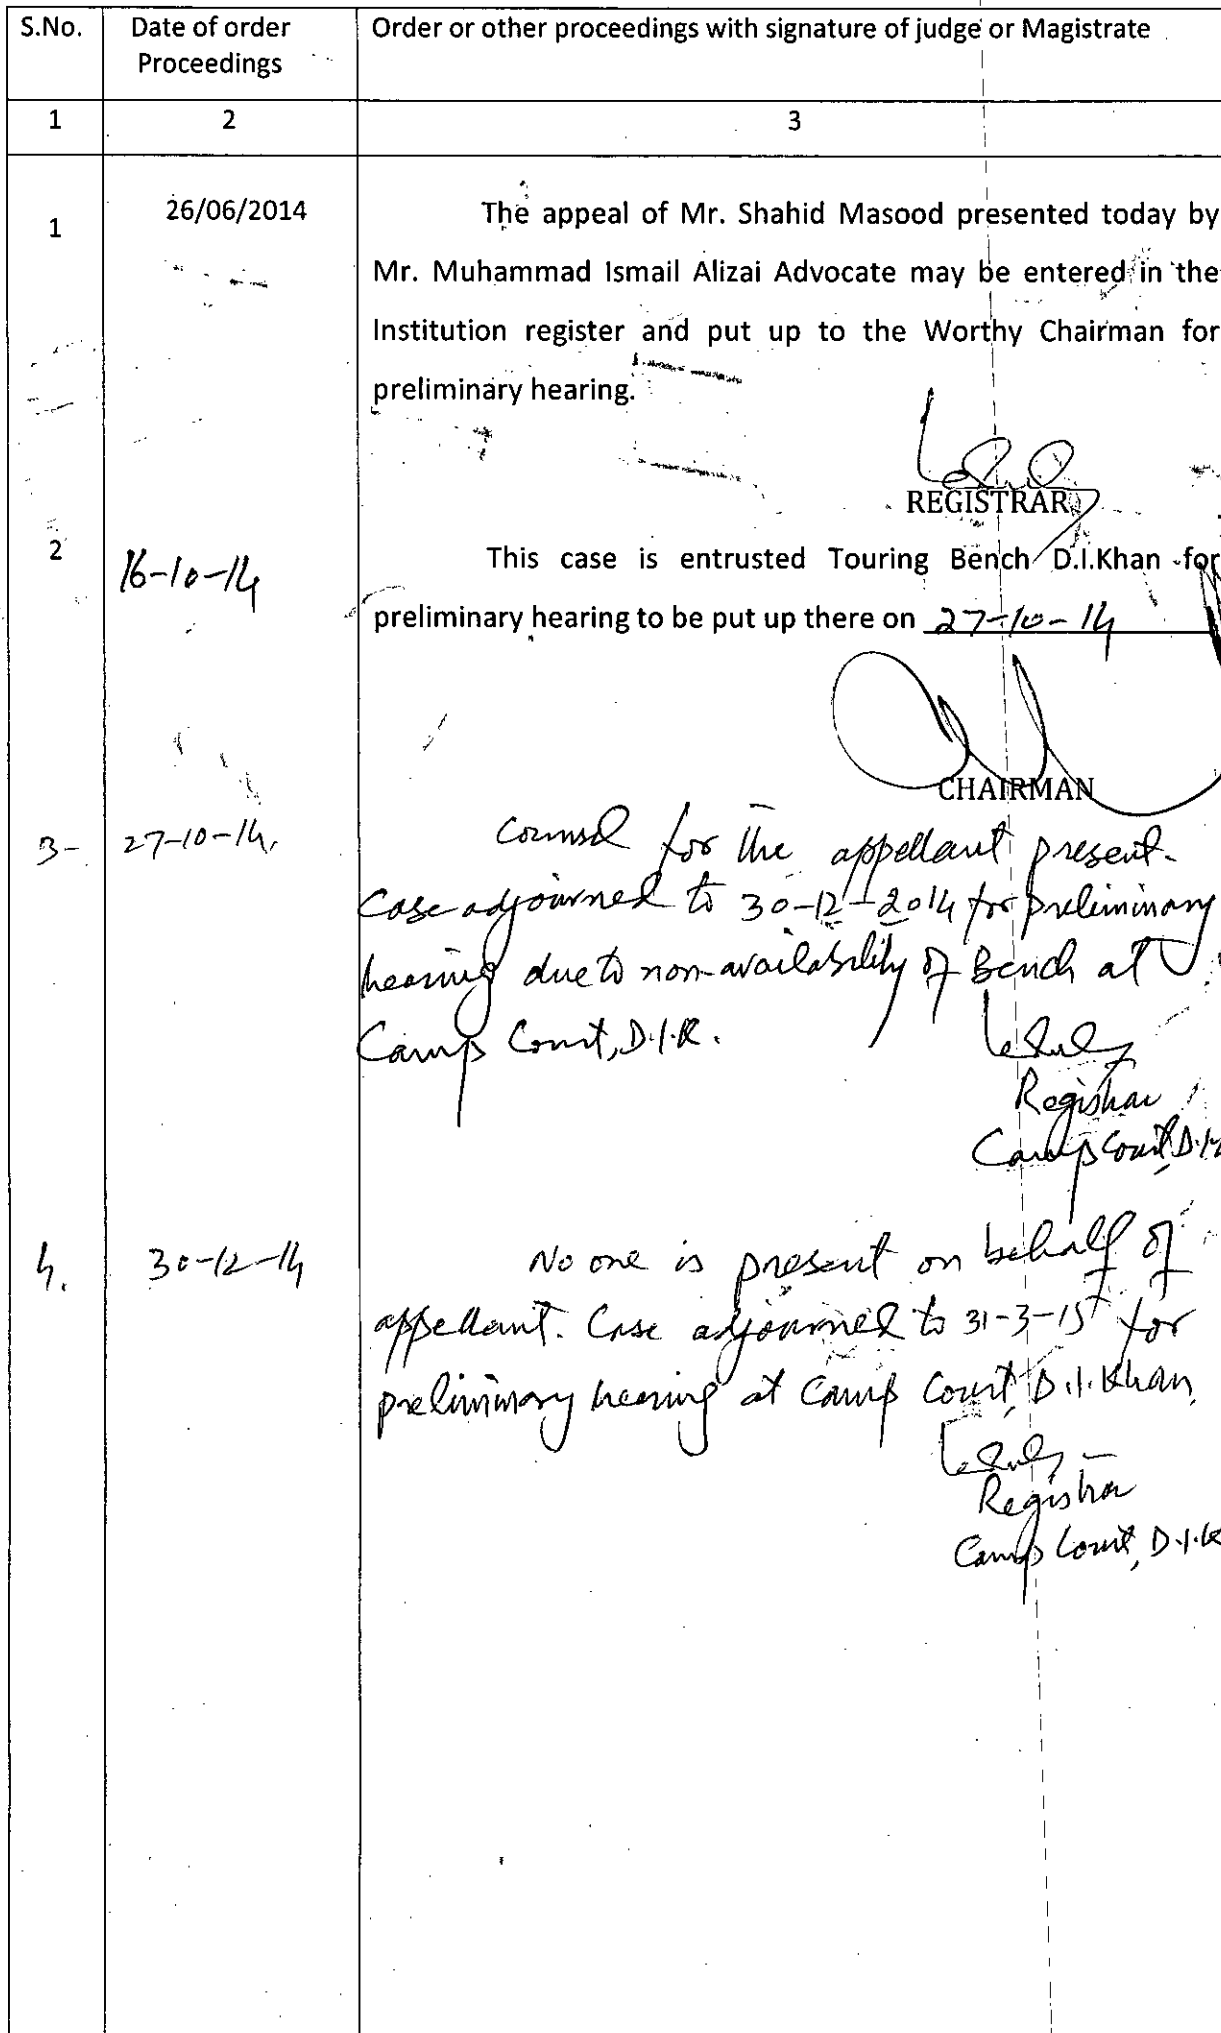 S.No. Date of order Order or other proceedings with signature of judge or Magistrate
Proceedings
1 2 3
1 26/06/2014 The appeal of Mr. Shahid Masood presented today by
Mr. Muhammad Ismail Alizai Advocate may be entered in the
Institution register and put up to the Worthy Chairman for
preliminary hearing.
REGISTRAR
2 16-10-14 This case is entrusted Touring Bench D.I.Khan for
preliminary hearing to be put up there on 27-10-14
CHAIRMAN
3- 27-10-14. Counsel for the appellant present.
Case adjourned to 30-12-2014 for preliminary
hearing due to non-availability of Bench at
Camp Court, D.I.K.
Registrar
Camp Court, D.I.K
4. 30-12-14 No one is present on behalf of
appellant. Case adjourned to 31-3-15 for
preliminary hearing at Camp Court, D.I.Khan
Registrar
Camp Court, D.I.K